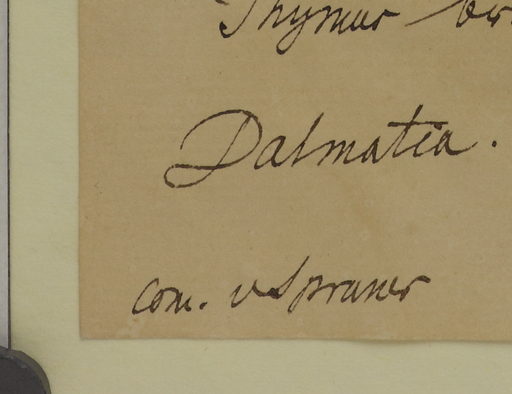 Thymus br
Dalmatia.
com. v Spruner